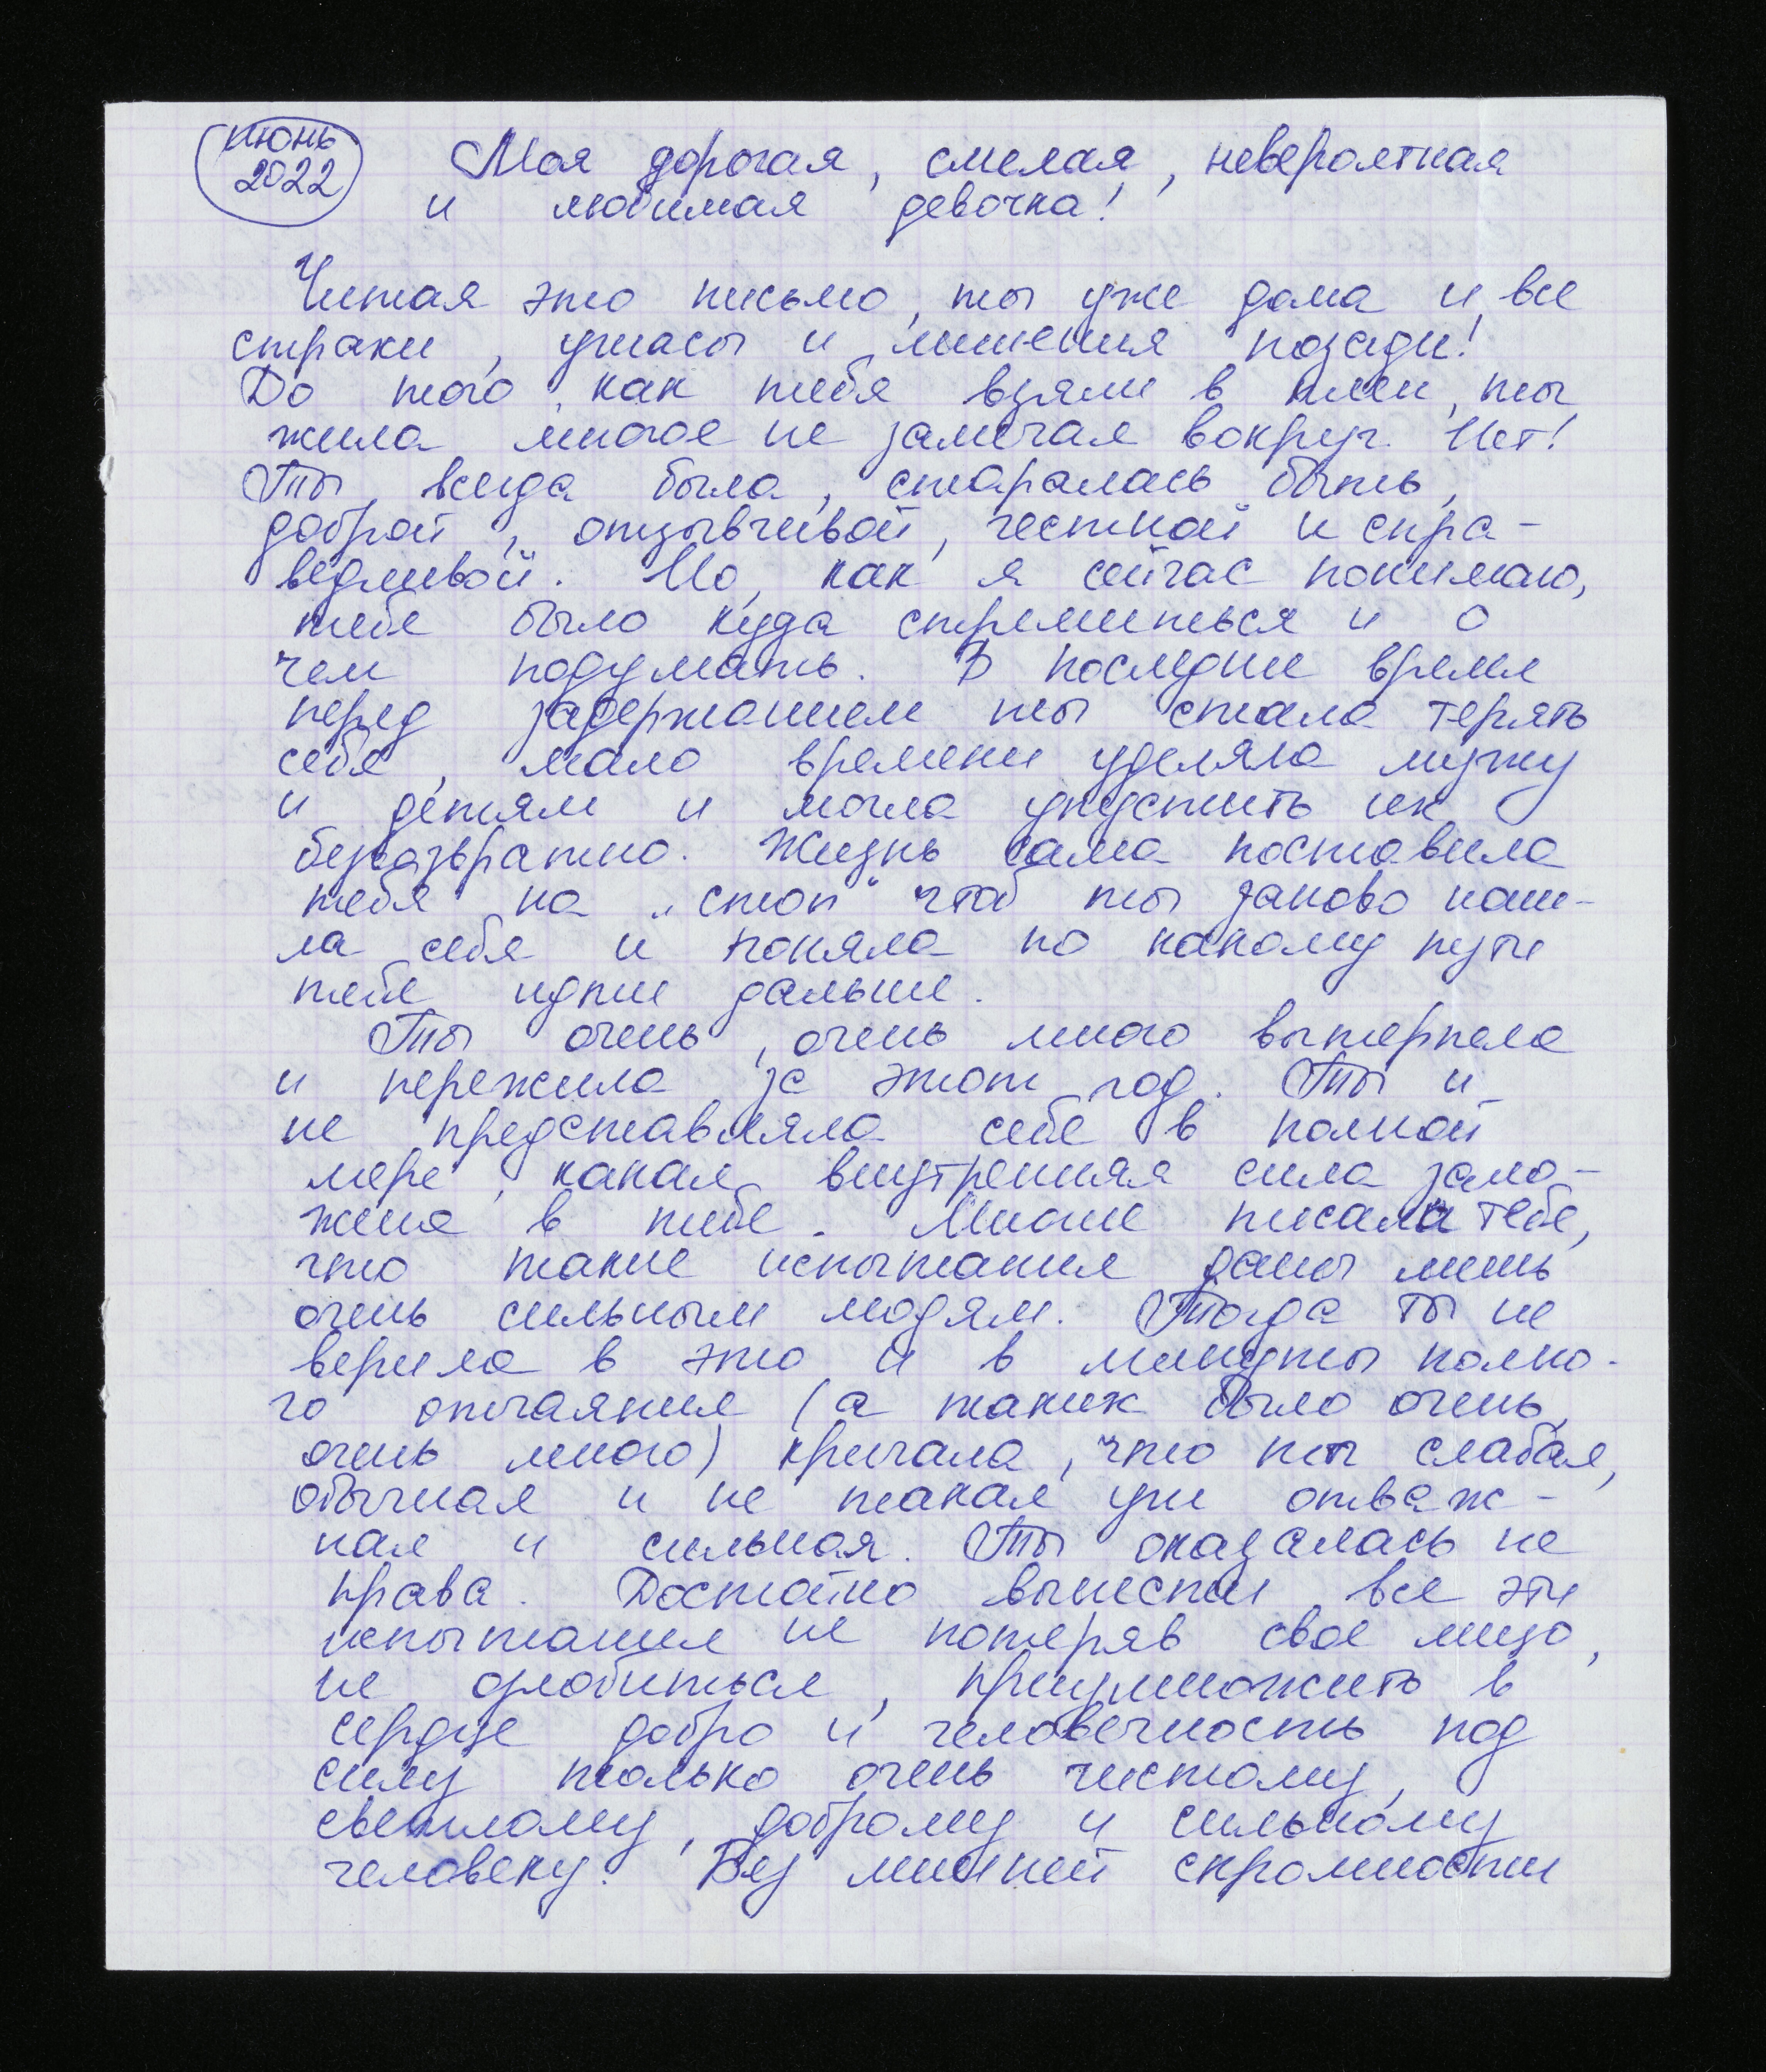 июнь
2022
Моя дорогая, смелая, невероятная
и любимая девочка!
Читая это письмо, ты уже дома и все
страхи, ужасы и лишения позади!
До того, как тебя взяли в плен, ты
жила многое не замечая вокруг. Нет!
Ты всегда была, старалась быть,
доброй, отзывчивой, честной и спра-
ведливой. Но, как я сейчас понимаю,
тебе было куда стремиться и о
чем подумать. В последнее время
перед задержанием ты стала терять
себя, мало времени уделяла мужу
и детям и могла упустить их
безвозвратно. Жизнь сама поставила
тебя на „стоп" чтоб ты заново наш-
ла себя и поняла по какому пути
тебе идти дальше.
Ты очень, очень много вытерпела
и пережила за этот год. Ты и
не представляла себе в полной
мере, какая внутренняя сила зало-
жена в тебе. Многие писали тебе,
что такие испытания даны лишь
очень сильным людям. Тогда ты не
верила в это и в минуты полно-
го отчаяния (а таких было очень,
очень много) кричала, что ты слабая,
обычная и не такая уж отваж-
ная и сильная. Ты оказалась не
права. Достойно вынести все эти
испытания не потеряв свое лицо,
не озлобиться, приумножить в
сердце добро и человечность под
силу только очень чистому,
светлому, доброму и сильному
человеку. Без лишней скромности